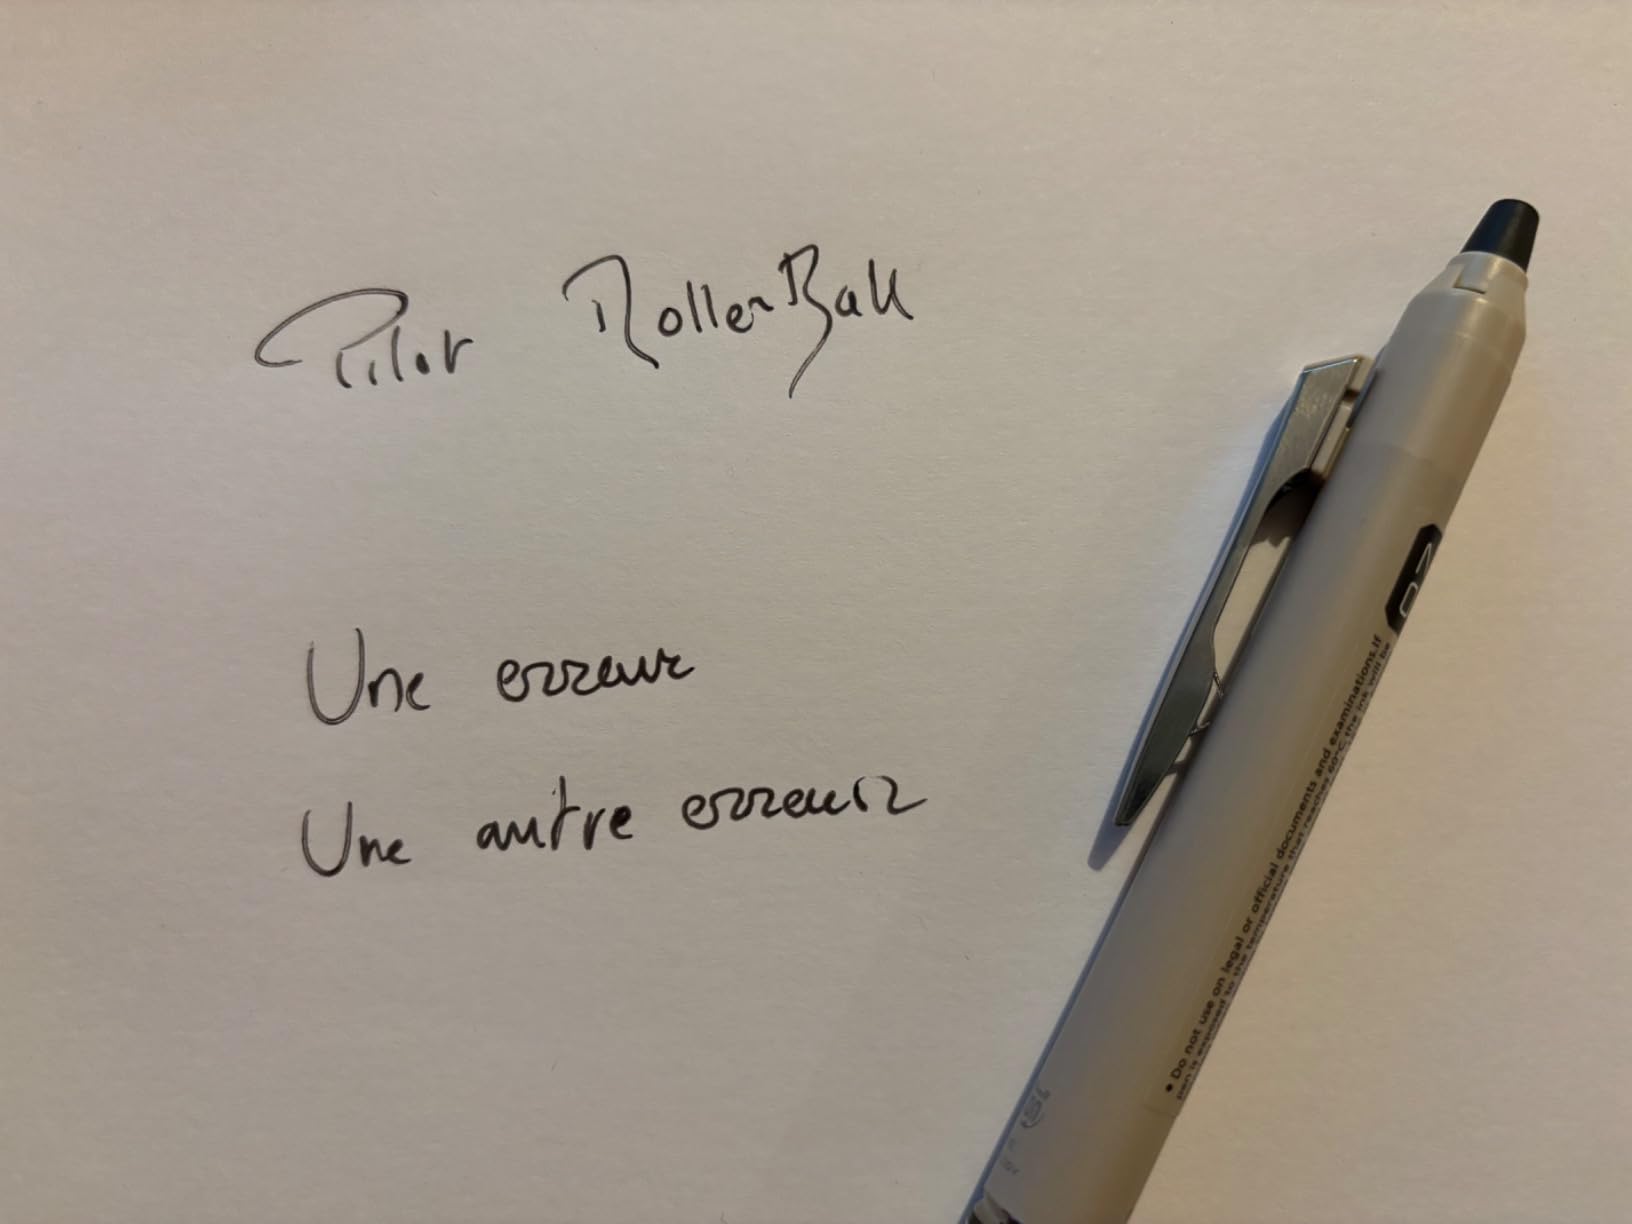 Pilot RollerBall
Une erreur
Une autre erreur
07
• Do not use on legal or official documents and examinations. If
pen is exposed to the temperature that reaches 60°C, the ink will be